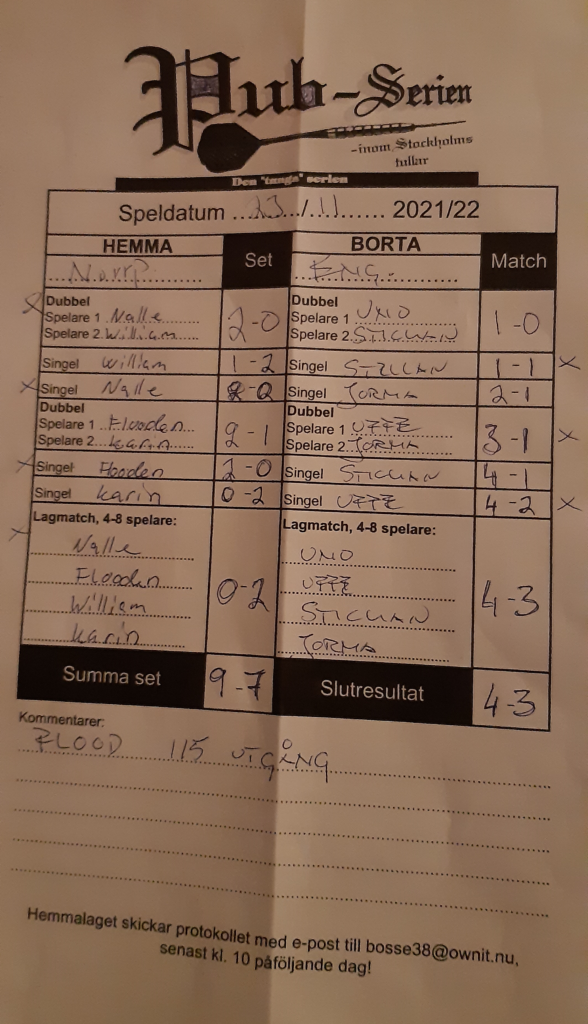 Pub-Serien
-inom Stockholms
tullar
Den "tunga" serien
Speldatum ...23.../11...... 2021/22
HEMMA Set BORTA Match
Norrp ENG.
Dubbel Dubbel
Spelare 1 Nalle 2-0 Spelare 1 UNO 1-0
Spelare 2 William Spelare 2 STICKAN
Singel William 1-2 Singel STICKAN 1-1 X
X Singel Nalle 2-0 Singel JORMA 2-1
Dubbel Dubbel
Spelare 1 Flooden 2-1 Spelare 1 UFFE 3-1 X
Spelare 2 Karin Spelare 2 JORMA
X Singel Flooden 2-0 Singel STICKAN 4-1
Singel Karin 0-2 Singel UFFE 4-2 X
X Lagmatch, 4-8 spelare: Lagmatch, 4-8 spelare:
Nalle UNO
Flooden 0-2 UFFE 4-3
William STICKAN
Karin JORMA
Summa set 9-7 Slutresultat 4-3
Kommentarer:
FLOOD 115 UTGÅNG
Hemmalaget skickar protokollet med e-post till bosse38@ownit.nu,
senast kl. 10 påföljande dag!